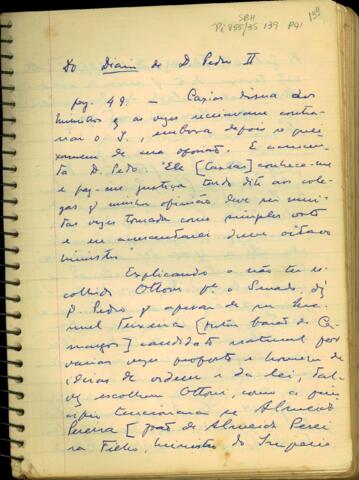 SBH
Pi 855/35 139 P91
139
Do Diario de D. Pedro II
pag. 49. — Caxias dizia aos
ministros q as vezes receavam contra-
riar o I., embora depois se quei-
xassem de sua opinião. E acrescen-
ta D. Pedro: "Ele [Caxias] conhece-me
e faz-me justiça tendo dito aos cole-
gas q minha opinião deve ser mui-
tas vezes tomada como simples voto
e eu acrescentarei de um oitavo
ministro"
Explicando o não ter es-
colhido Ottoni pa o Senado, diz
D. Pedro q apesar de ser Ma-
nuel Teixeira [futuro barão de Ca-
margos] candidato natural por
varias vezes proposto e homem de
ideias de ordem e da lei, tal-
vez escolhesse Ottoni, como a prin-
cipio tencionava se Almeida
Pereira [João de Almeida Perei-
ra Filho, ministro do Imperio